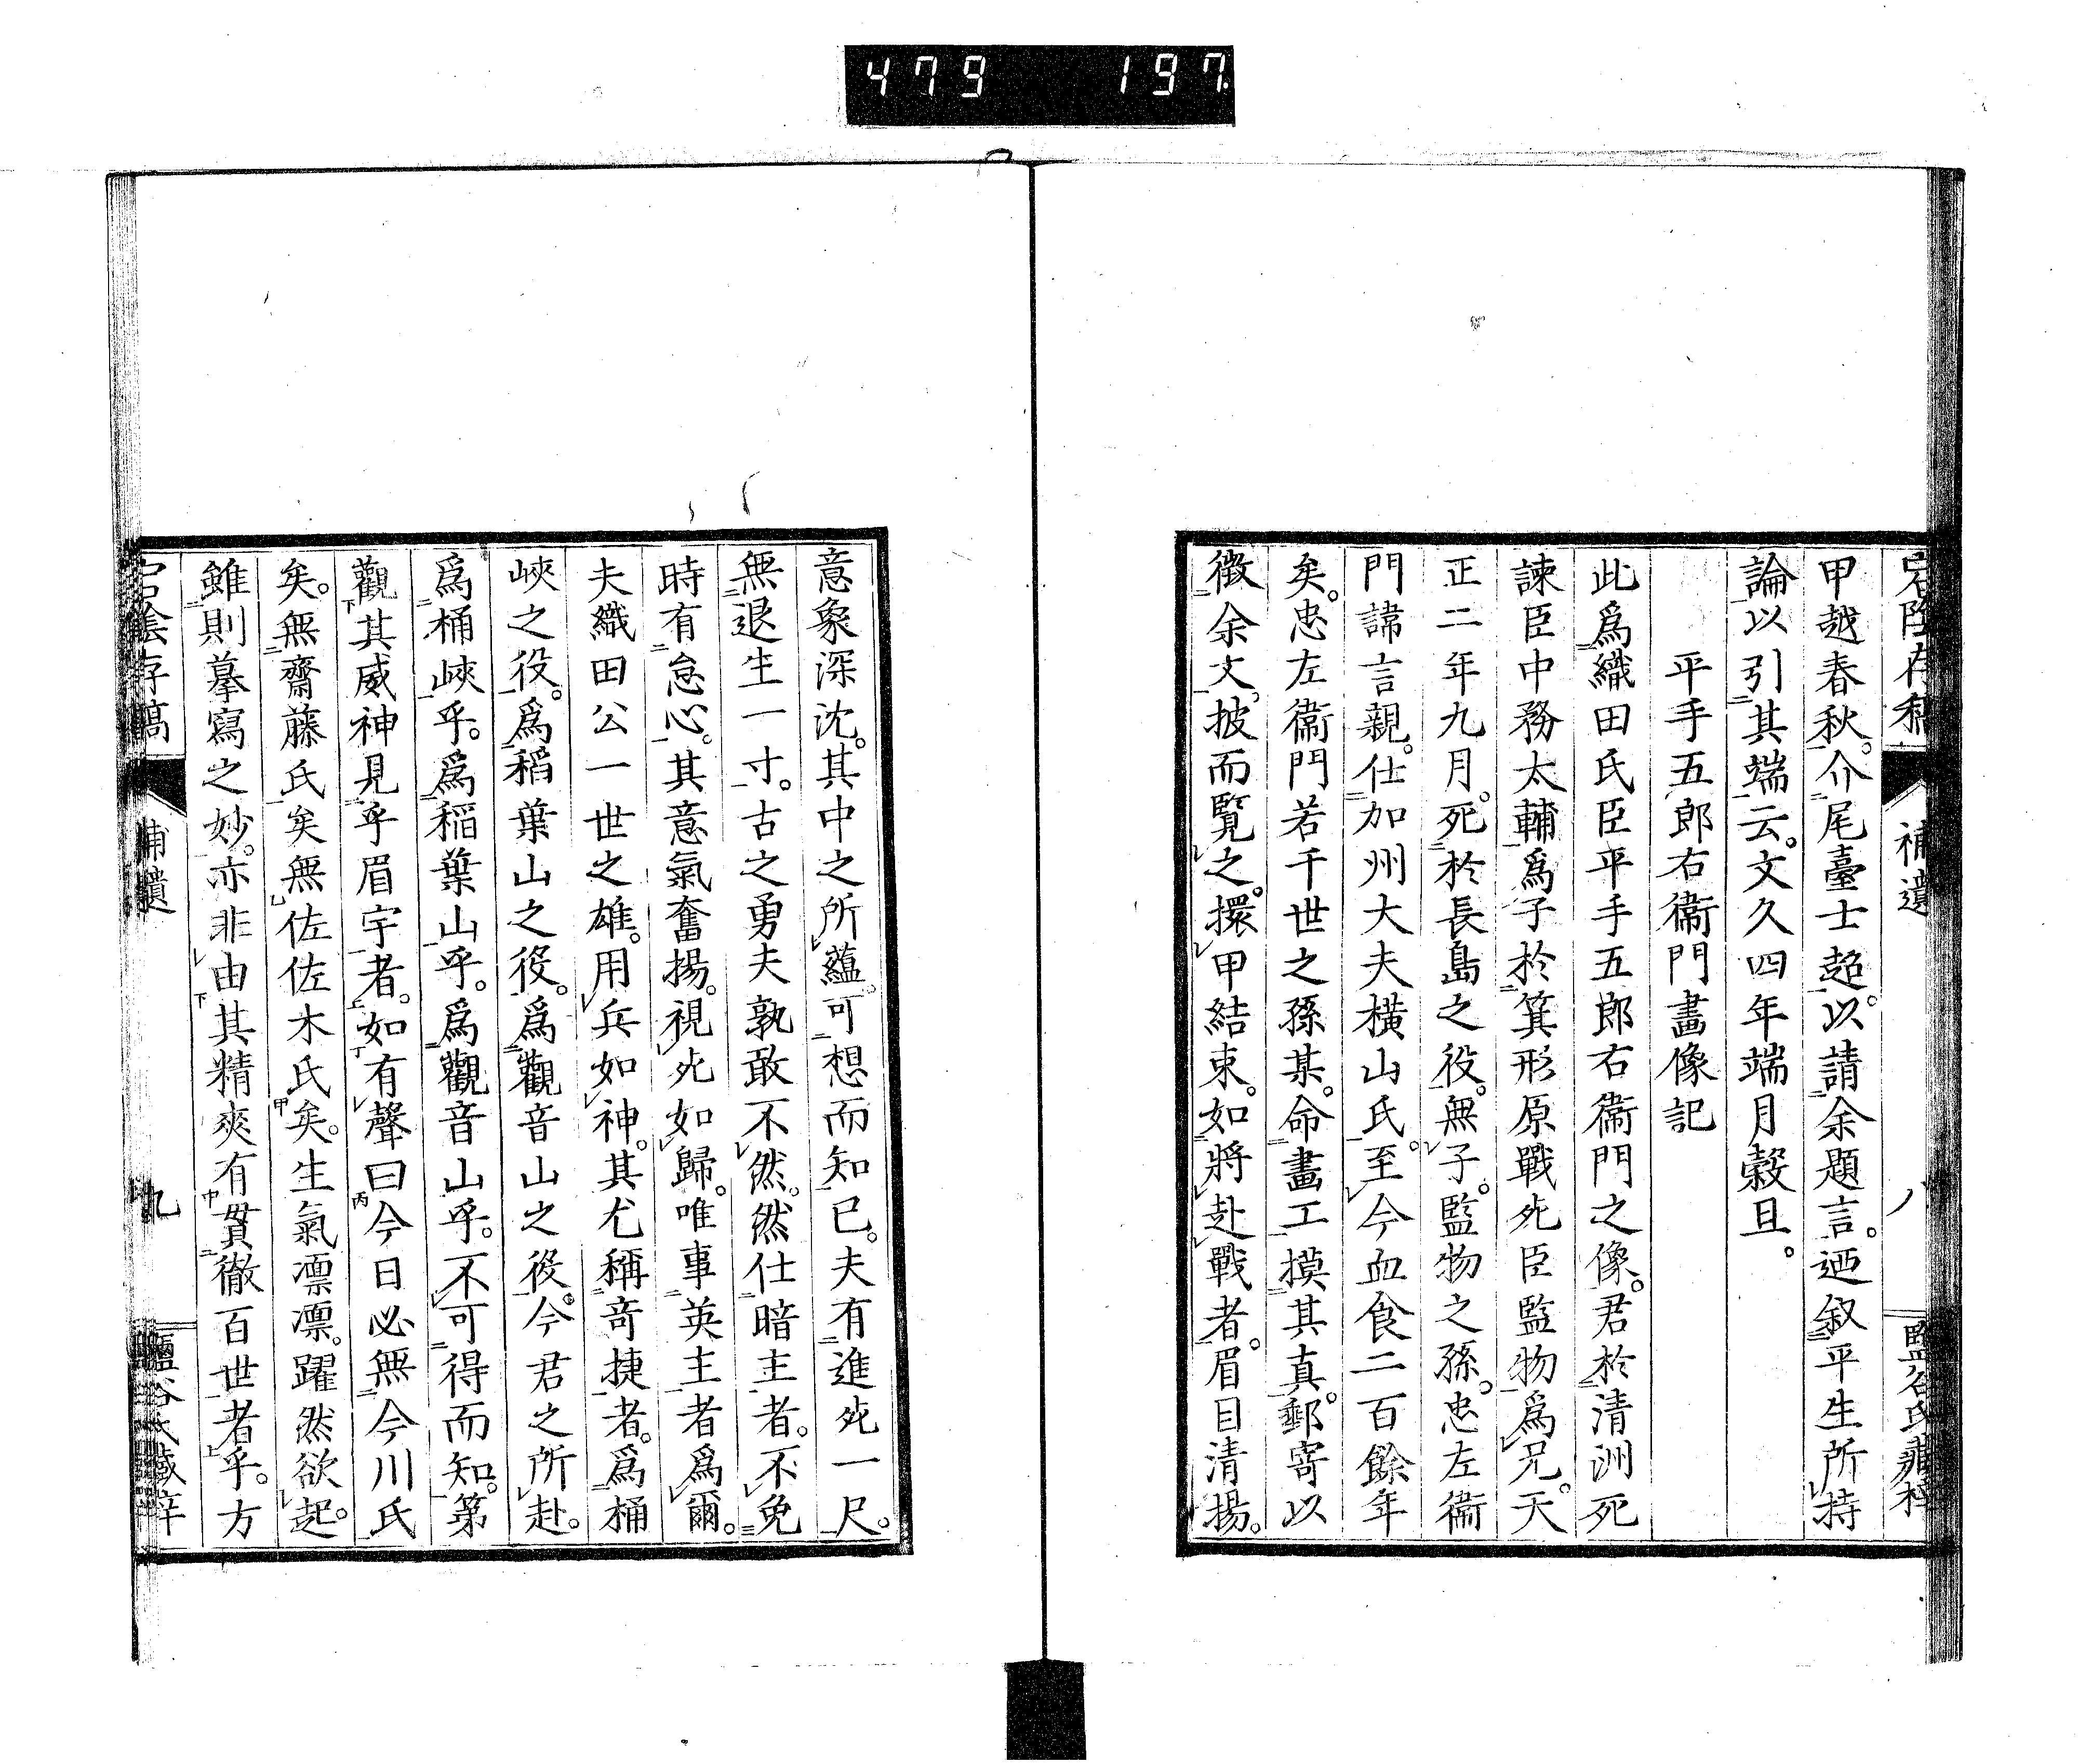 479 197.
宕陰存稿 補遺 八 鹽谷氏藏梓
甲越春秋。介尾臺士超。以請余題言。迺叙平生所持
論以引其端云。文久四年端月穀旦。
平手五郎右衞門畫像記
此爲織田氏臣平手五郎右衞門之像。君於清洲死
諫臣中務太輔爲子於箕形原戰死臣監物爲兄。天
正二年九月。死於長島之役。無子。監物之孫。忠左衞
門諱言親。仕加州大夫横山氏。至今血食二百餘年
矣。忠左衞門若千世之孫某。命畫工摸其真。郵寄以
徴余文。披而覧之。擐甲結束。如將赴戰者。眉目清揚。
意象深沈。其中之所蘊。可想而知已。夫有進死一尺。
無退生一寸。古之勇夫孰敢不然。然仕暗主者。不免
時有怠心。其意氣奮揚。視死如歸。唯事英主者爲爾。
夫織田公一世之雄。用兵如神。其尤稱竒捷者。爲桶
峽之役。爲稻葉山之役。爲觀音山之役。今君之所赴。
爲桶峽乎。爲稻葉山乎。爲觀音山乎。不可得而知。第
觀其威神見乎眉宇者。如有聲曰今日必無今川氏
矣。無齋藤氏矣無佐佐木氏矣。生氣凛凛。躍然欲起。
雖則摹寫之妙。亦非由其精爽有貫徹百世者乎。方
宕陰存稿 補遺 九 鹽谷氏藏梓